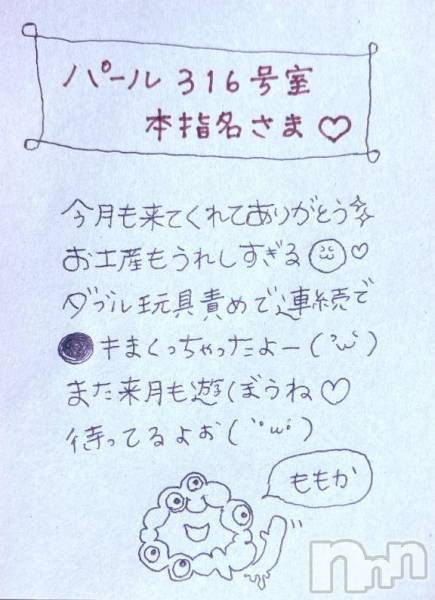 パール316号室
本指名さま♡
今月も来てくれてありがとう☆
お土産もうれしすぎる♡
ダブル玩具責めで連続で
●キまくっちゃったよー(´'ω'`)
また来月も遊ぼうね♡
待ってるよぉ(´'ω'`)
ももか
Nnn